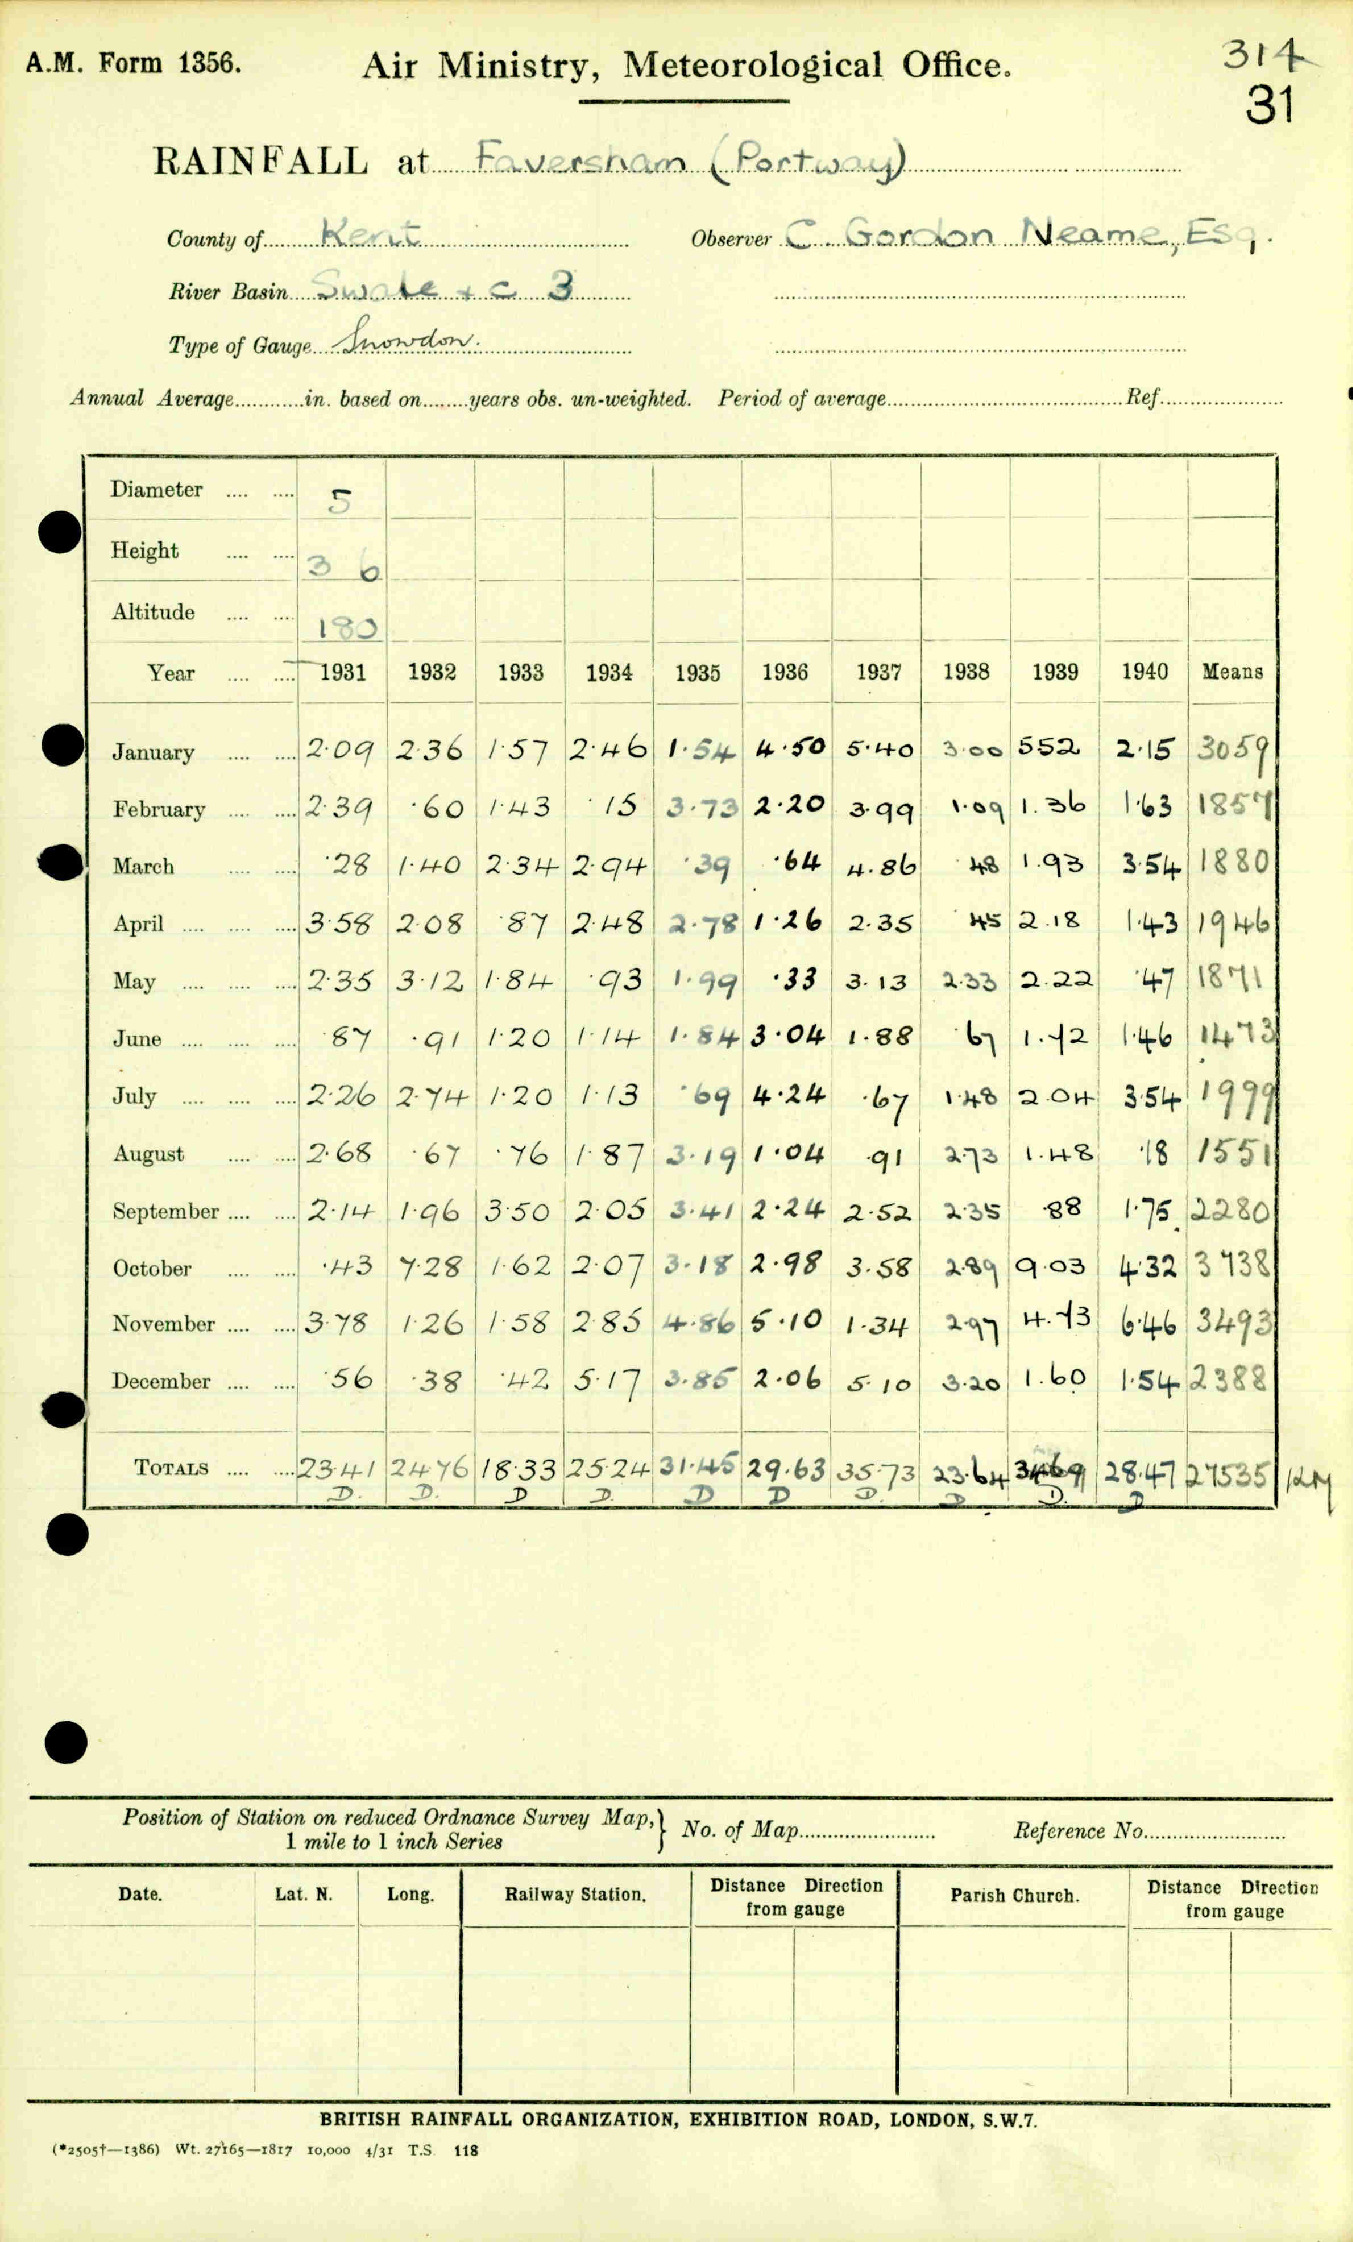 A.M. Form 1356.
Air Ministry, Meteorological Office.
314
31
RAINFALL at Faversham (Portway)
County of Kent Observer C. Gordon Neame, Esq.
River Basin Swale + c 3
Type of Gauge Snowdon.
Annual Average in. based on years obs. un-weighted. Period of average Ref.
Diameter 5
Height 3 6
Altitude 180
Year 1931 1932 1933 1934 1935 1936 1937 1938 1939 1940 Means
January 2·09 2·36 1·57 2·46 1·54 4·50 5·40 3·00 552 2·15 3059
February 2·39 ·60 1·43 ·15 3·73 2·20 3·99 1·09 1.36 1·63 1857
March ·28 1·40 2·34 2·94 ·39 ·64 4.86 ·48 1.93 3·54 1880
April 3·58 2·08 ·87 2·48 2·78 1·26 2·35 45 2.18 1·43 1946
May 2·35 3·12 1·84 ·93 1·99 ·33 3·13 2·33 2.22 ·47 1871
June ·87 ·91 1·20 1·14 1·84 3·04 1·88 ·67 1.72 1·46 1473
July 2·26 2·74 1·20 1·13 ·69 4·24 ·67 1·48 2.04 3·54 1999
August 2·68 ·67 ·76 1·87 3·19 1·04 ·91 2·73 1.48 ·18 1551
September 2·14 1·96 3·50 2·05 3·41 2·24 2·52 2·35 ·88 1·75 2280
October ·43 7·28 1·62 2·07 3·18 2·98 3·58 2·89 9·03 4·32 3738
November 3·78 1·26 1·58 2·85 4·86 5·10 1·34 2·97 4·73 6·46 3493
December ·56 ·38 ·42 5·17 3·85 2·06 5·10 3·20 1.60 1·54 2388
TOTALS 23·41 24·76 18·33 25·24 31·45 29·63 35·73 23·64 3469 28·47 27535
D. D. D D. D D D. D D. D
Position of Station on reduced Ordnance Survey Map,
1 mile to 1 inch Series
No. of Map Reference No.
Date. Lat. N. Long. Railway Station. Distance Direction from gauge Parish Church. Distance Direction from gauge
BRITISH RAINFALL ORGANIZATION, EXHIBITION ROAD, LONDON, S.W.7.
(*2505†—1386) Wt. 27165—1817 10,000 4/31 T.S. 118